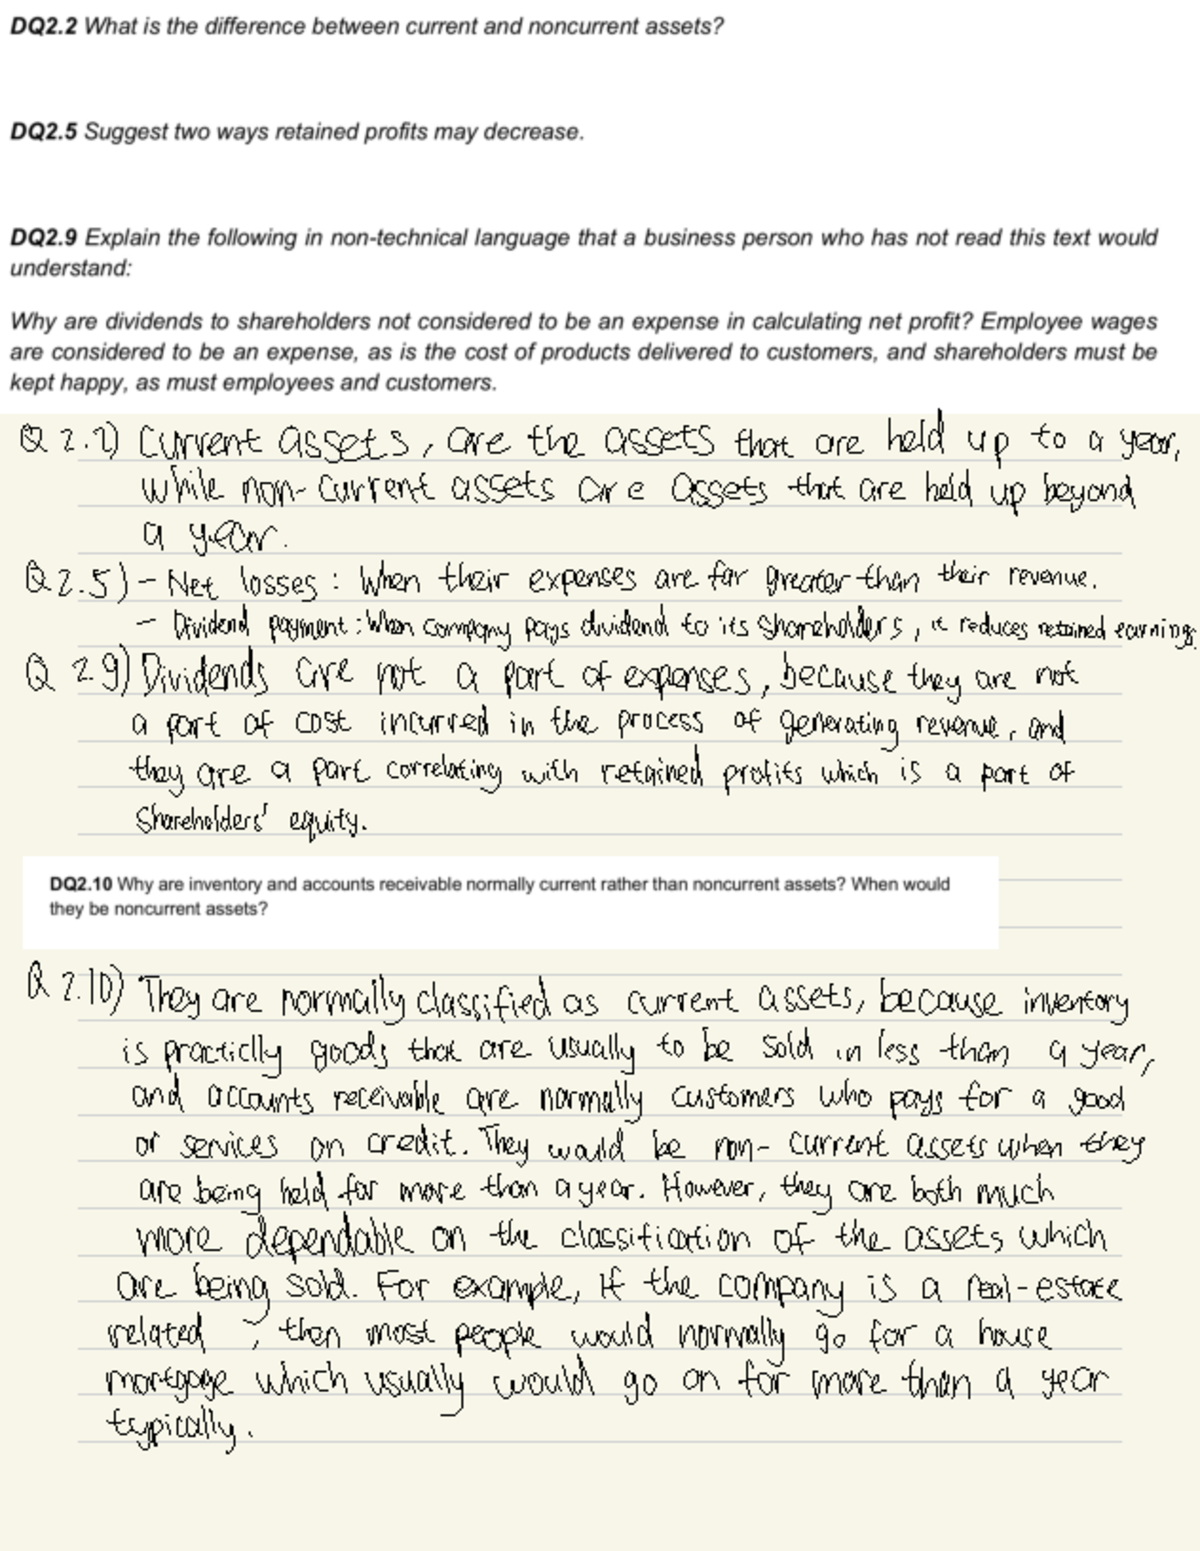 DQ2.2 What is the difference between current and noncurrent assets?
DQ2.5 Suggest two ways retained profits may decrease.
DQ2.9 Explain the following in non-technical language that a business person who has not read this text would
understand:
Why are dividends to shareholders not considered to be an expense in calculating net profit? Employee wages
are considered to be an expense, as is the cost of products delivered to customers, and shareholders must be
kept happy, as must employees and customers.
Q 2.2) Current assets, are the assets that are held up to a year,
while non-current assets are assets that are held up beyond
a year.
Q2.5) - Net losses : When their expenses are far greater than their revenue.
- Dividend payment : When company pays dividend to its shareholders, it reduces retained earnings.
Q 2.9) Dividends are not a part of expenses, because they are not
a part of cost incurred in the process of generating revenue, and
they are a part correlating with retained profits which is a part of
Shareholders' equity.
DQ2.10 Why are inventory and accounts receivable normally current rather than noncurrent assets? When would
they be noncurrent assets?
Q 2.10) They are normally classified as current assets, because inventory
is practiclly goods that are usually to be sold in less than a year,
and accounts receivable are normally customers who pays for a good
or services on credit. They would be non-current assets when they
are being held for more than a year. However, they are both much
more dependable on the classification of the assets which
are being sold. For example, if the company is a real-estate
related , then most people would normally go for a house
mortgage which usually would go on for more than a year
typically.